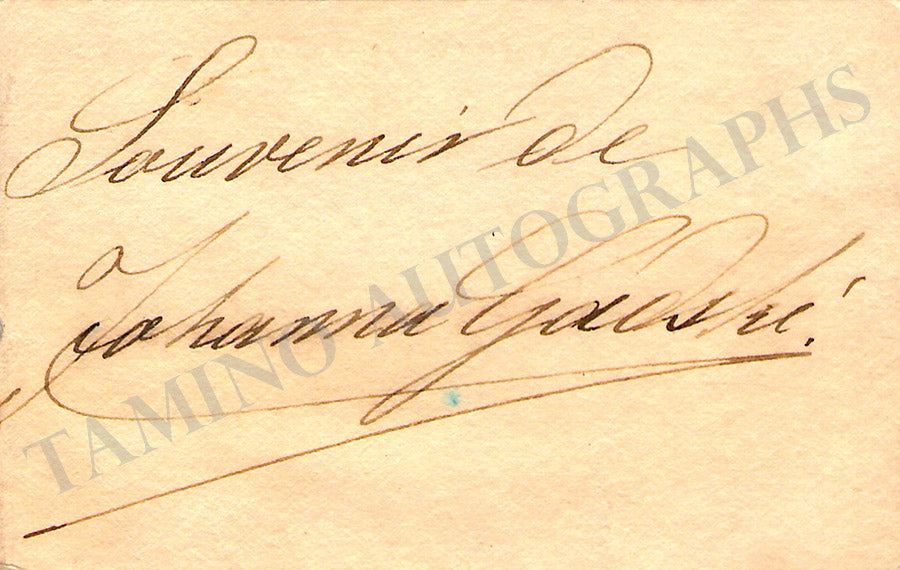 Souvenir de
Johanna Gadski!
TAMINO AUTOGRAPHS